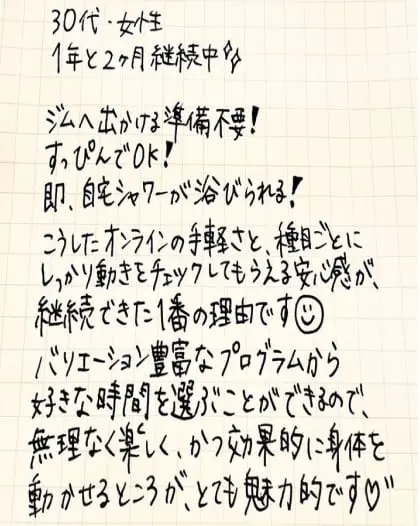 30代・女性
1年と2ヶ月継続中✨
ジムへ出かける準備不要！
すっぴんでOK！
即、自宅シャワーが浴びられる！
こうしたオンラインの手軽さと、種目ごとに
しっかり動きをチェックしてもらえる安心感が、
継続できた1番の理由です☺
バリエーション豊富なプログラムから
好きな時間を選ぶことができるので、
無理なく楽しく、かつ効果的に身体を
動かせるところが、とても魅力的です♡"